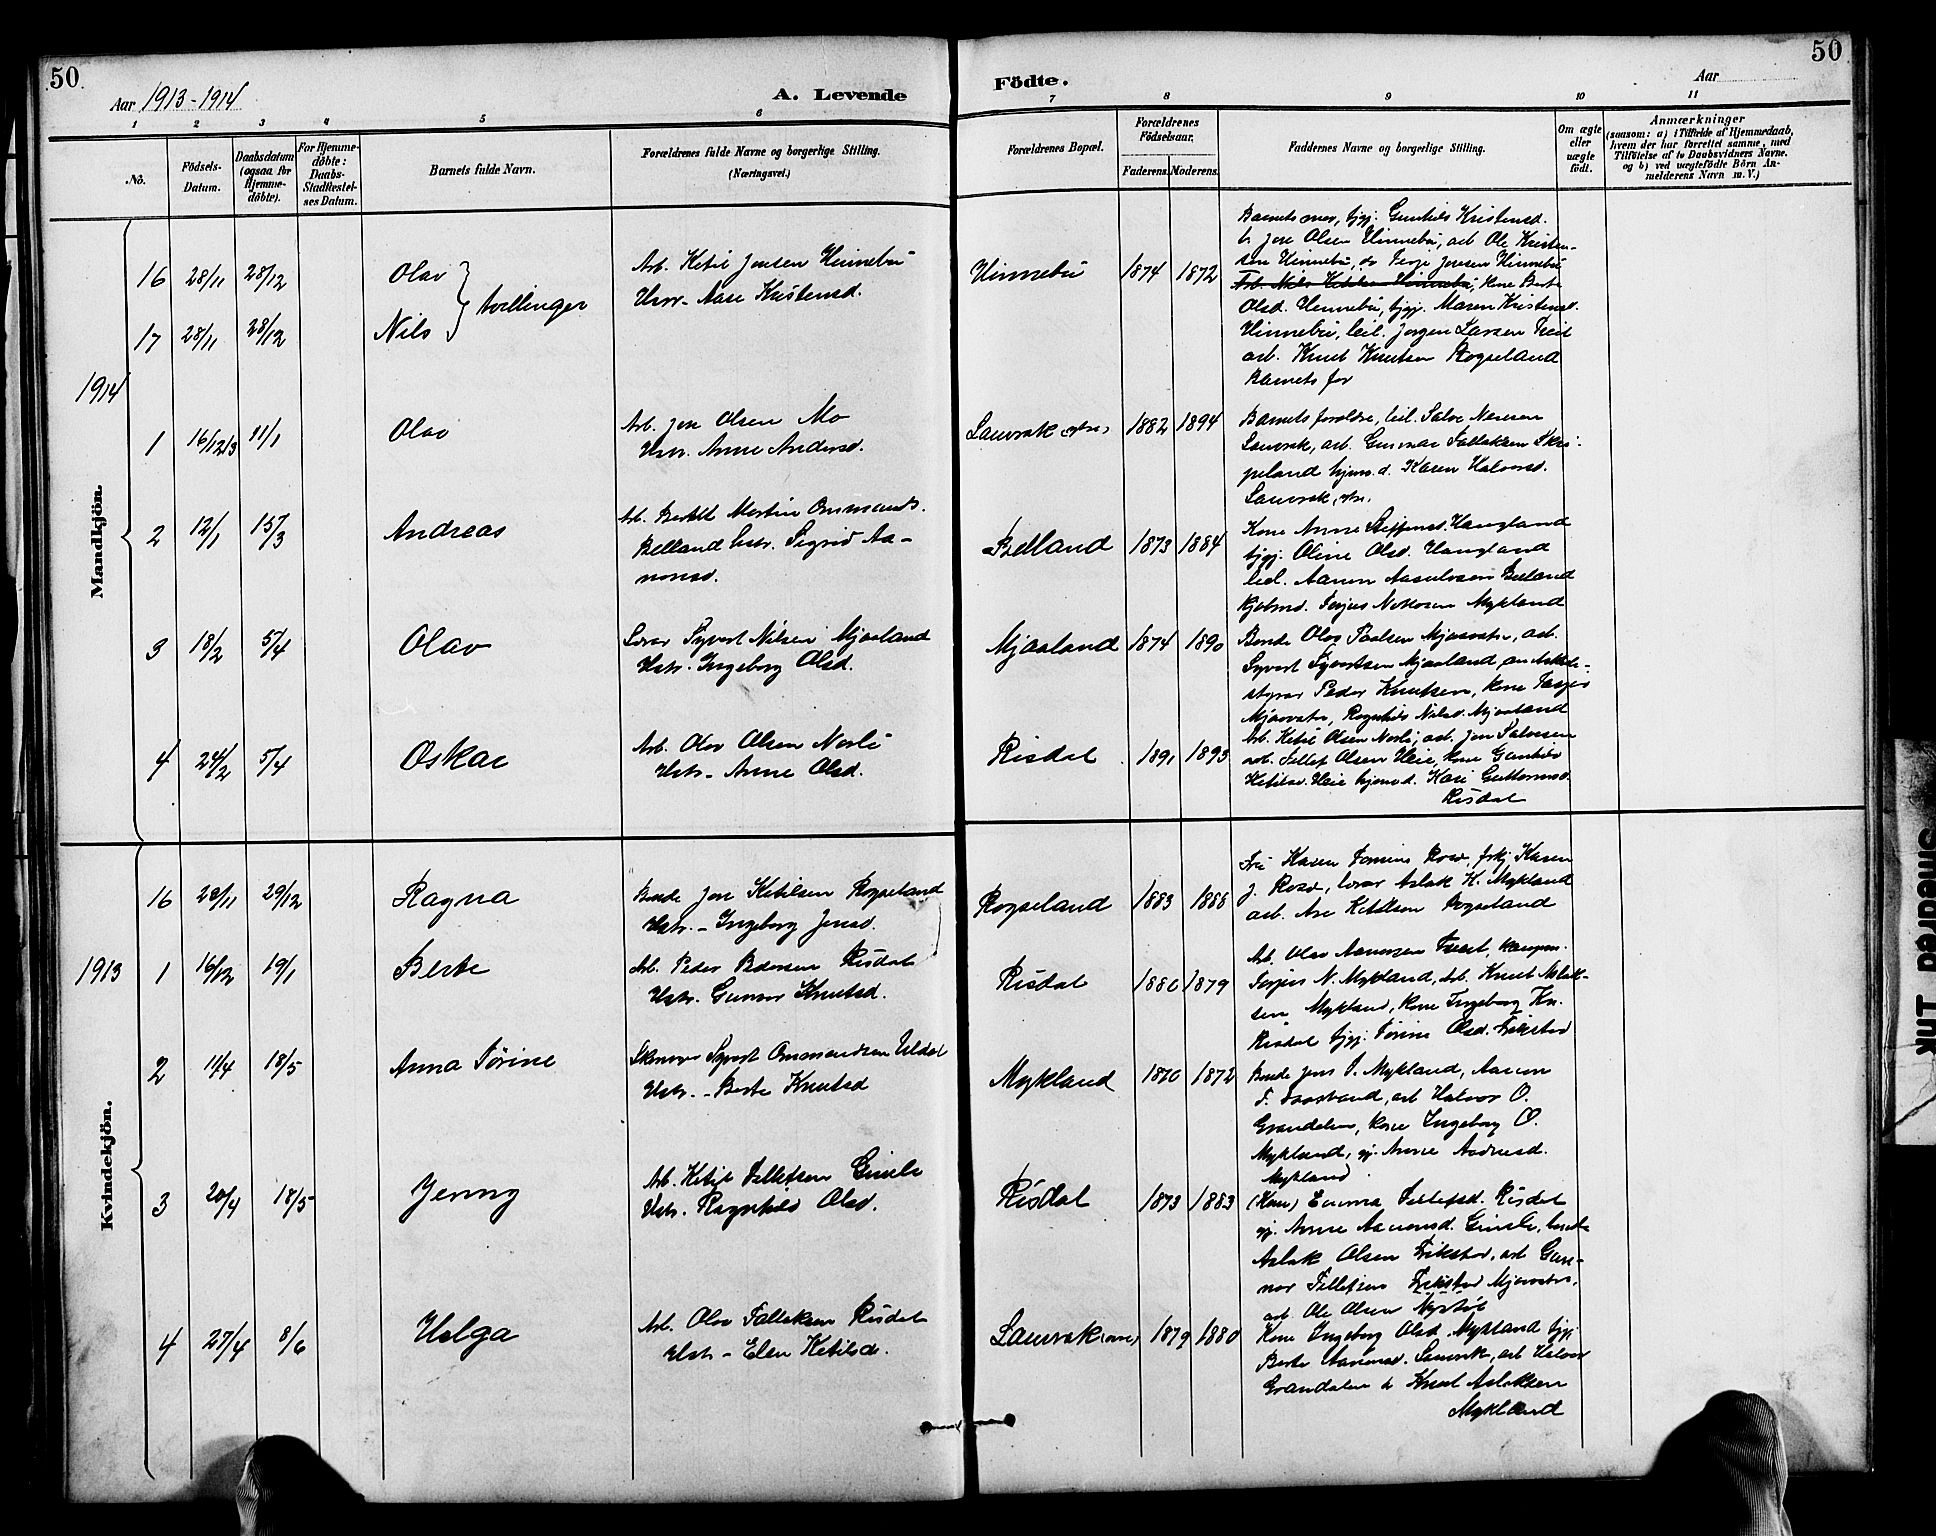 50
50
Aar 1913-1914
A. Levende
Födte.
Aar
1
2
3
4
5
6
7
8
9
10
11
No.
Födsels-
Datum.
Daabsdatum
(ogsaa for
Hjemme-
döbte).
For Hjemme-
döbte:
Daabs-
Stadfæstel-
ses Datum.
Barnets fulde Navn.
Forældrenes fulde Navne og borgerlige Stilling.
(Næringsvei.)
Forældrenes Bopæl.
Forældrenes
Födselsaar.
Faderens.
Moderens.
Faddernes Navne og borgerlige Stilling.
Om ægte
eller
uægte
födt.
Anmærkninger
(saasom: a) i Tilfælde af Hjemmedaab,
hvem der har forrettet samme, med
Tilföielse af to Daabsvidners Navne.
og b) ved uægtefödte Börn An-
melderens Navn m. V.)
Mandkjön.
16 28/11 28/12 Olav
17 28/11 28/12 Nils
tvillinger
Arb. Ketil Jensen Hinnebu
Hstr. Aase Kristensd.
Hinnebu 1874 1872
Olsen Hinnebu, arb. Ole Kristen-
sen Hinnebu,
kone Berte
Olsd. Hinnebu, tjpj. Maren Kristensd.
Hinnebu, leil. Jørgen Larsen
arb. Knut Knutsen Rogseland
Barnets far
1914
1 16/12 13 11/1 Olav
Arb. Jon Olsen Mo
Hstr. Anne Andersd.
Lauvrak 1882 1894
Barnets foreldre, leil. Salve
Lauvrak, arb. Gunnar Tallaksen
hjem. d. Karen Halvorsd.
Lauvrak
2 12/1 15/3 Andreas
Arb. Bertel Martin Ommunds.
Belland hstr. Sigrid Aa-
nonsd.
Belland 1873 1884
Kone Anne Steffensd. Haugland
tjpj. Oline Olsd. Haugland
Aanon Aasulvsen Belland
Kjøbmd. Terjes Mykland
3 18/2 5/4 Olav
Lærer Syvert Nilsen Mjaaland
Hstr. Ingeborg Olsd.
Mjaaland 1874 1890
Bonde Olav Paalsen Mjaavatn, arb.
Syvert Syvertsen Mjaaland,
styrer Peder Knutsen, kone
Mjaavatn, Ragnhild Nilsd. Mjaaland
4 24/2 5/4 Oskar
Arb. Olav Olsen Norli
Hstr. Anne Olsd.
Risdal 1891 1893
Arb. Ketil Olsen Norli, arb. Jon Salvesen
arb. Tellef Olsen Heie, kone Gunhild
Ketilsd. Heie hjemd. Kari Guttormsd.
Risdal
Kvindekjön.
16 28/11 29/12 Ragna
Bonde Jon Ketilsen Rogseland
Hstr. Ingeborg Jensd.
Rogseland 1883 1888
Karen Tomine Rosø, Karen
J. Rosø, lærer Aslak K. Mykland
arb. Are Ketilsen Rogseland
1913
1 16/12 19/1 Berte
Arb. Peder Pedersen Risdal
Hstr. Gunvor Knutsd.
Risdal 1880 1879
Arb. Olav Aanonsen
Terjes N. Mykland, arb. Knut Aslak-
sen Mykland, kone Ingeborg Kn.
Risdal tjpj. Tørine Olsd. Frikstad
2 11/4 18/5 Anna Tørine
Syvert Ommundsen Uldal
Hstr. Berte Knutsd
Mykland 1870 1872
Bonde Jens J. Mykland, Aanon
T. arb Halvor O.
Grandalen, kone Ingeborg O.
Mykland, pj. Anne Andersd.
Mykland
3 20/4 18/5 Jenny
Arb. Ketil Tellefsen Ginsli
Hstr. Ragnhild Olsd.
Risdal 1873 1883
(Kone) Emma Tellefsd. Risdal
pj. Anne Aanonsd. Ginsli, bonde
Aslak Olsen Frikstad, arb Gun-
nar Tellefsen Frikstad Mjaavatn,
arb. Ole Olsen Nystøl
4 27/4 8/6 Helga
Arb. Olav Tallaksen Risdal
Hstr. Elen Ketilsd.
Lauvrak 1879 1880
Kone Ingeborg Olsd. Mykland tjpj.
Berte Aanonsd. Lauvrak, arb Halvor
Grandalen Knut Aslaksen
Mykland
Smeared Ink